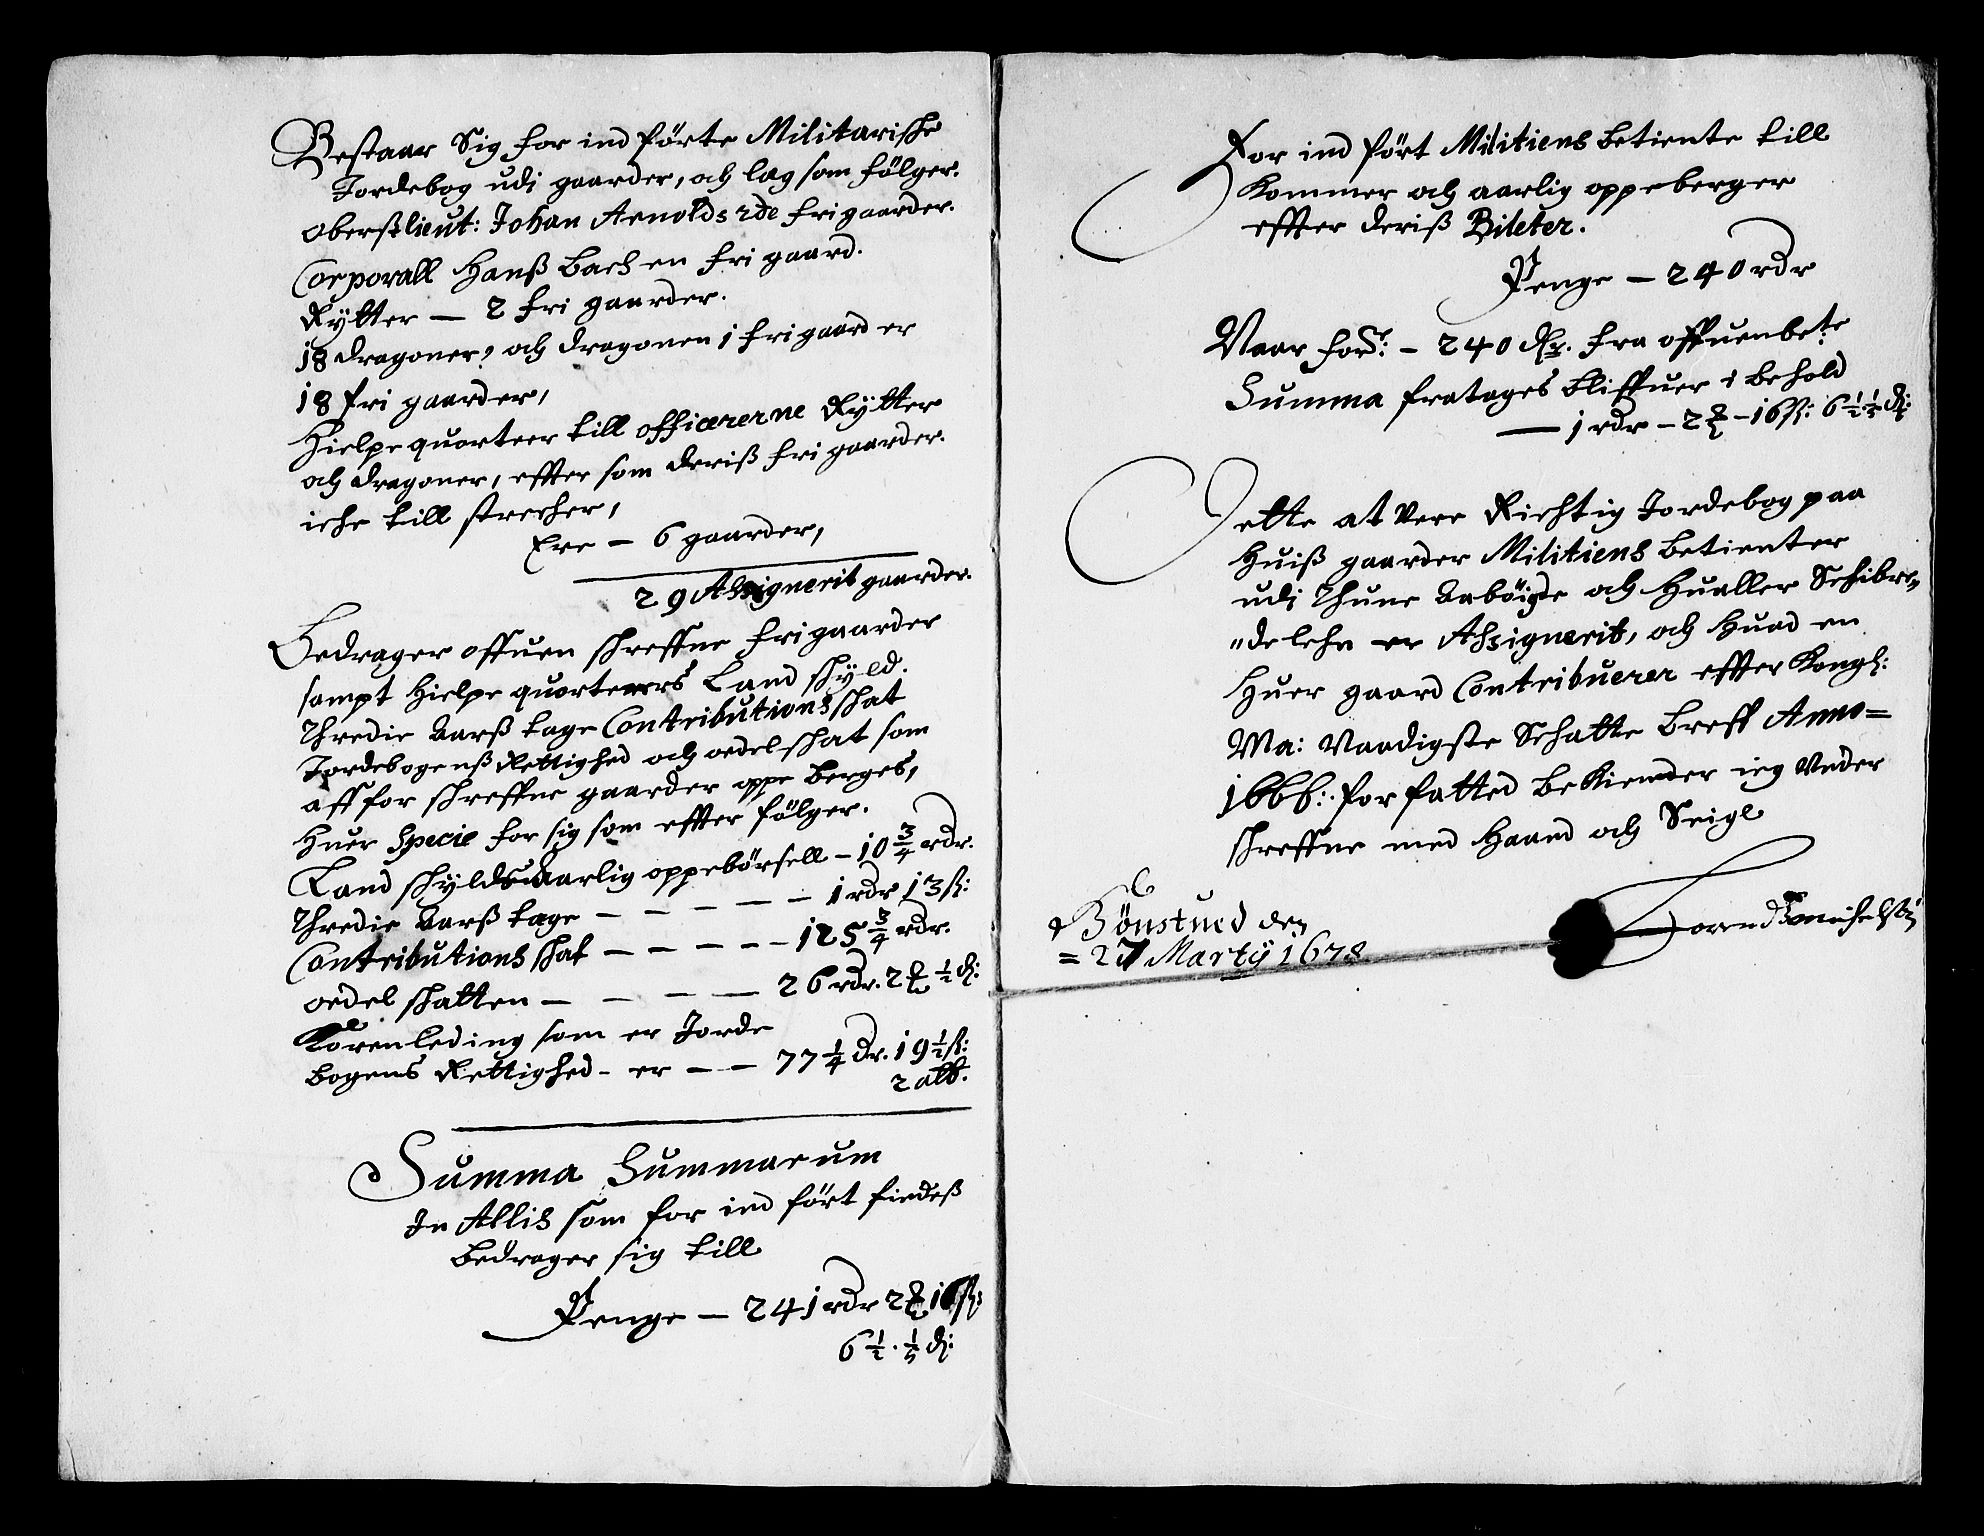 Bestaar Sig for ind förte Militarische
Jordebog udj gaarder, och lag som fölger.
Oberstlieut: Johan Arnolds 2de frigaarder.
Corporall Hanß Bach en fri gaard.
Rÿtter — 2 fri gaarder.
18 dragoner, och dragonen 1 frigaard er
18 fri gaarder,
Hielpe quarteer till officererne Rÿtter
och dragoner, effter som deriß fri gaarder.
iche till strecher,
Ere — 6 gaarder,
29 Assignerit gaarder.
Bedrager offuen schreffne frigaarder
sampt hielpe quarteerers Land schÿld.
Thredie Aarß tage Contributions schat
Jordebogenß Rettighed och oedel schat som
aff for schreffne gaarder oppe berges,
huer Specie for sig som effter fölger.
Land schÿlds aarlig oppebörsell – 10 3/4 rdr.
Thredie Aarß tage – – – – – 1 rdr 13 ß:
Contributions schat – – – – – 125 3/4 rdr.
oedel schatten – – – – 26 rdr. 2 ℔ 1/2 d:
Korenleding som er Jorde
bogens Rettighed – er – – 77 1/4 dr. 19 1/2 ß:
2 alb.
Summa Summarum
In Allis som for ind fört findeß
bedrager sig till
Penge — 241 rdr 2 ℔ 16 ß:
6 1/2 . 1/5 d:
For ind fört Militiens betiente till
kommer och aarlig oppeberger
effter deriß Bileter.
Penge — 240 rdr
Naar forschr: – 240 Rdr. fra offuenbete
Summa fratages bliffuer i behold
— 1 rdr – 2 ℔ – 16 ß: 6 1/2 . 1/5 d:
Dette at vere Richtig Jordebog paa
huiß gaarder Militiens betienter
udj Thune Aabÿgde och Hualler Schibre„
„delehn er Assignerit, och huad en
huer gaard Contribuerer effter Kongl:
Ma: Naadigste Schatte breff Anno=
1666: forfatted bekiender ieg Under
schreffne med Haand och Seigl
Bönstued den
= 27 Martÿ 1678